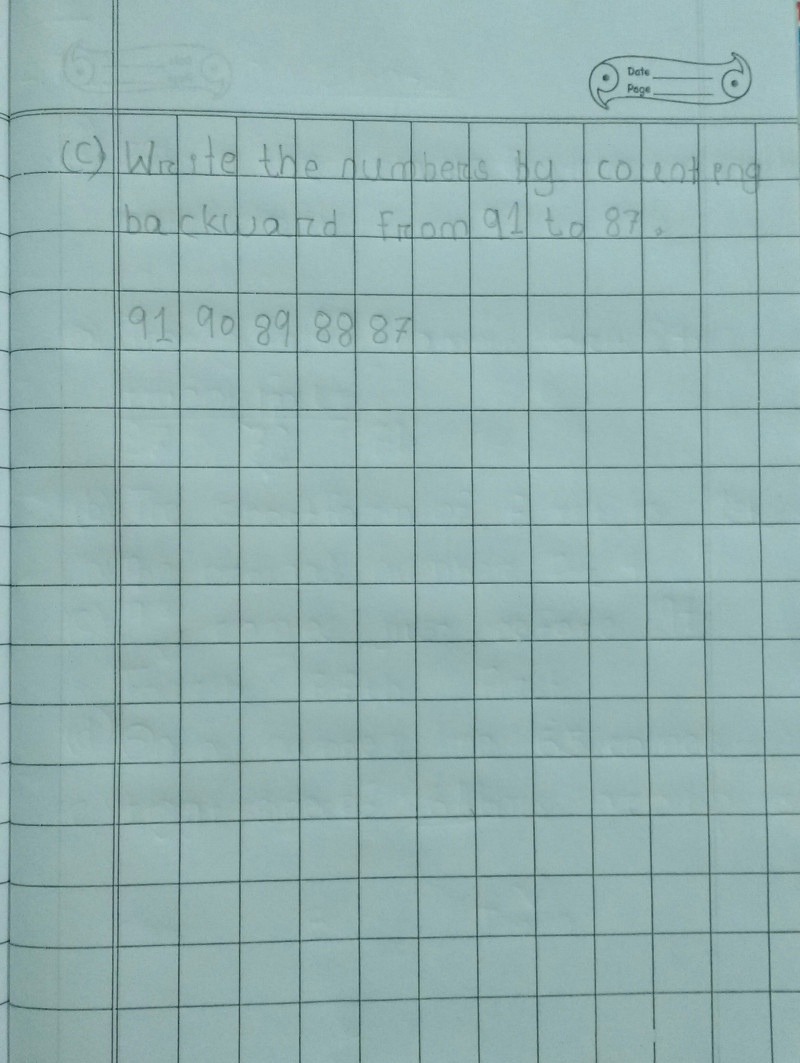 Date
Page
(C) Write the numbers by counteng
backward from 91 to 87.
91 90 89 88 87